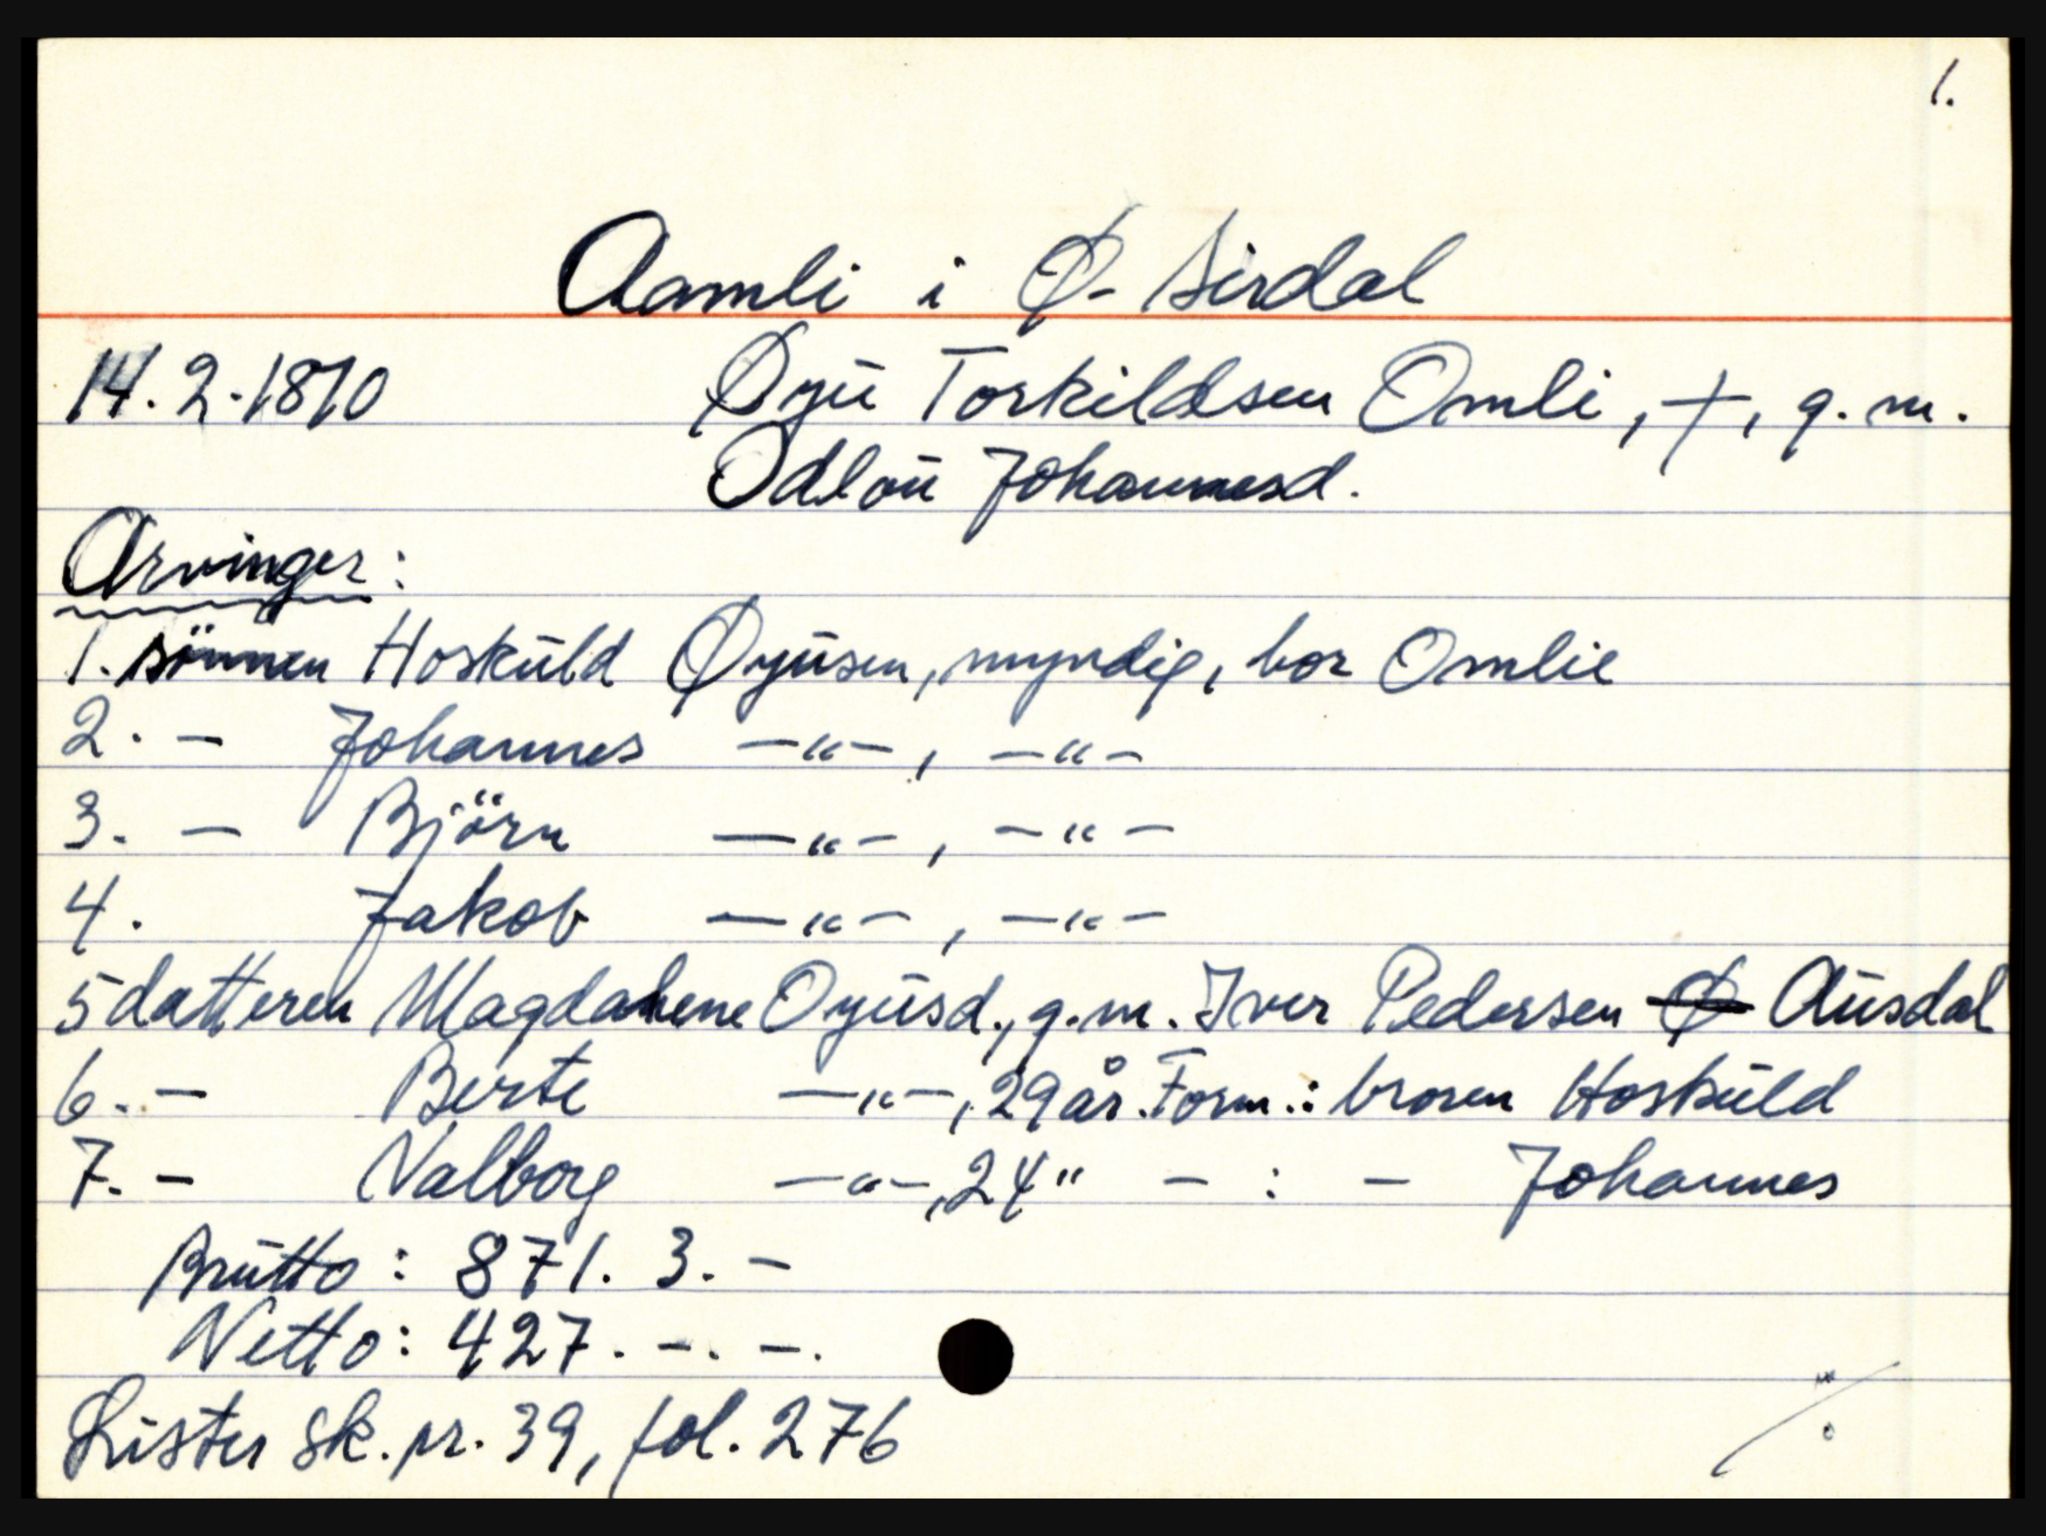 1.
Aamli i Ø. Sirdal
14.2.1810 Øyü Torkildsen Omli, +, g. m.
Odlaü Johannesd.
Arvinger:
1. sönnen Hosküld Øyüsen, myndig, bor Omlie
2. - Johannes -"-, -"-
3. - Björn -"-, -"-
4. Jakob -"-, -"-
5 datteren Magdahene Oyüsd., g.m. Iver Pedersen Ø Aüsdal
6. - Berte -"-, 29 år. Form.: broren Hosküld
7. - Valborg -"-, 24 " - : - Johannes
Brütto: 871. 3. -
Netto: 427. -. -.
Lister sk. pr. 39, fol. 276